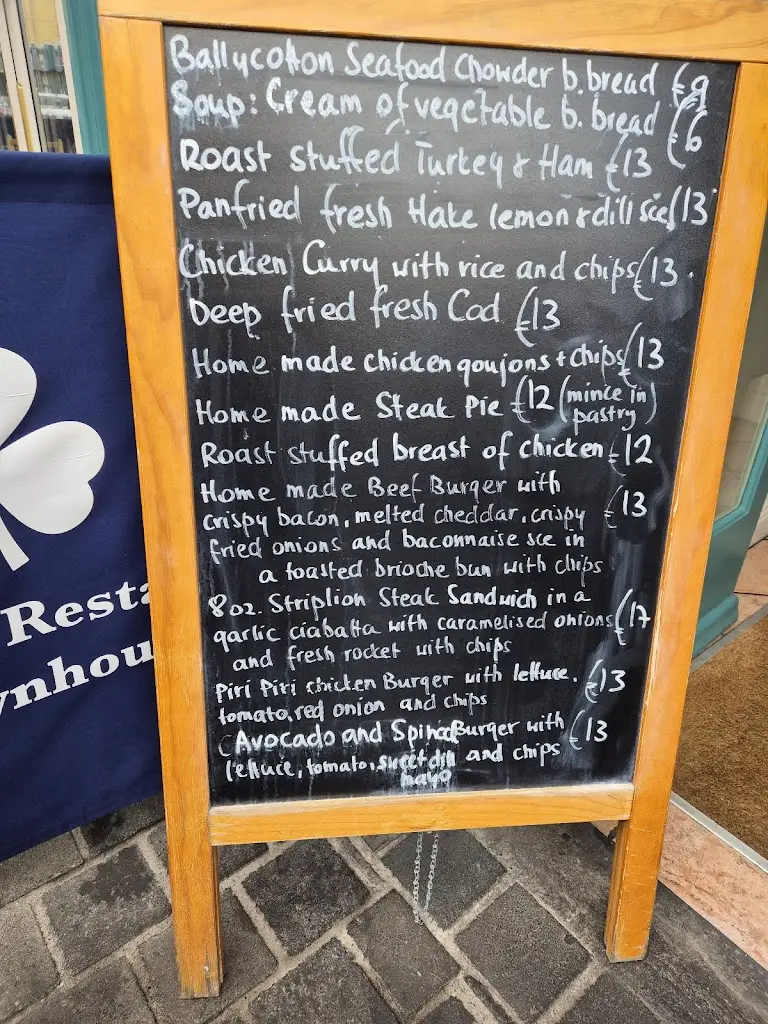 Ballycotton Seafood Chowder b.bread €9
Soup: Cream of vegetable b. bread €6
Roast stuffed Turkey & Ham €13
Panfried fresh Hake lemon & dill sce €13
Chicken Curry with rice and chips €13.
Deep fried fresh Cod €13
Home made chicken goujons + chips €13
Home made Steak Pie €12 (mince in pastry)
Roast stuffed breast of chicken €12
Home made Beef Burger with €13
crispy bacon, melted cheddar, crispy
fried onions and baconnaise sce in
a toasted brioche bun with chips
8oz. Striplion Steak Sandwich in a
garlic ciabatta with caramelised onions €17
and fresh rocket with chips
Piri Piri chicken Burger with lettuce, €13
tomato, red onion and chips
Avocado and Spinach Burger with €13
lettuce, tomato, sweet dill and chips
mayo
Resta
wnhou